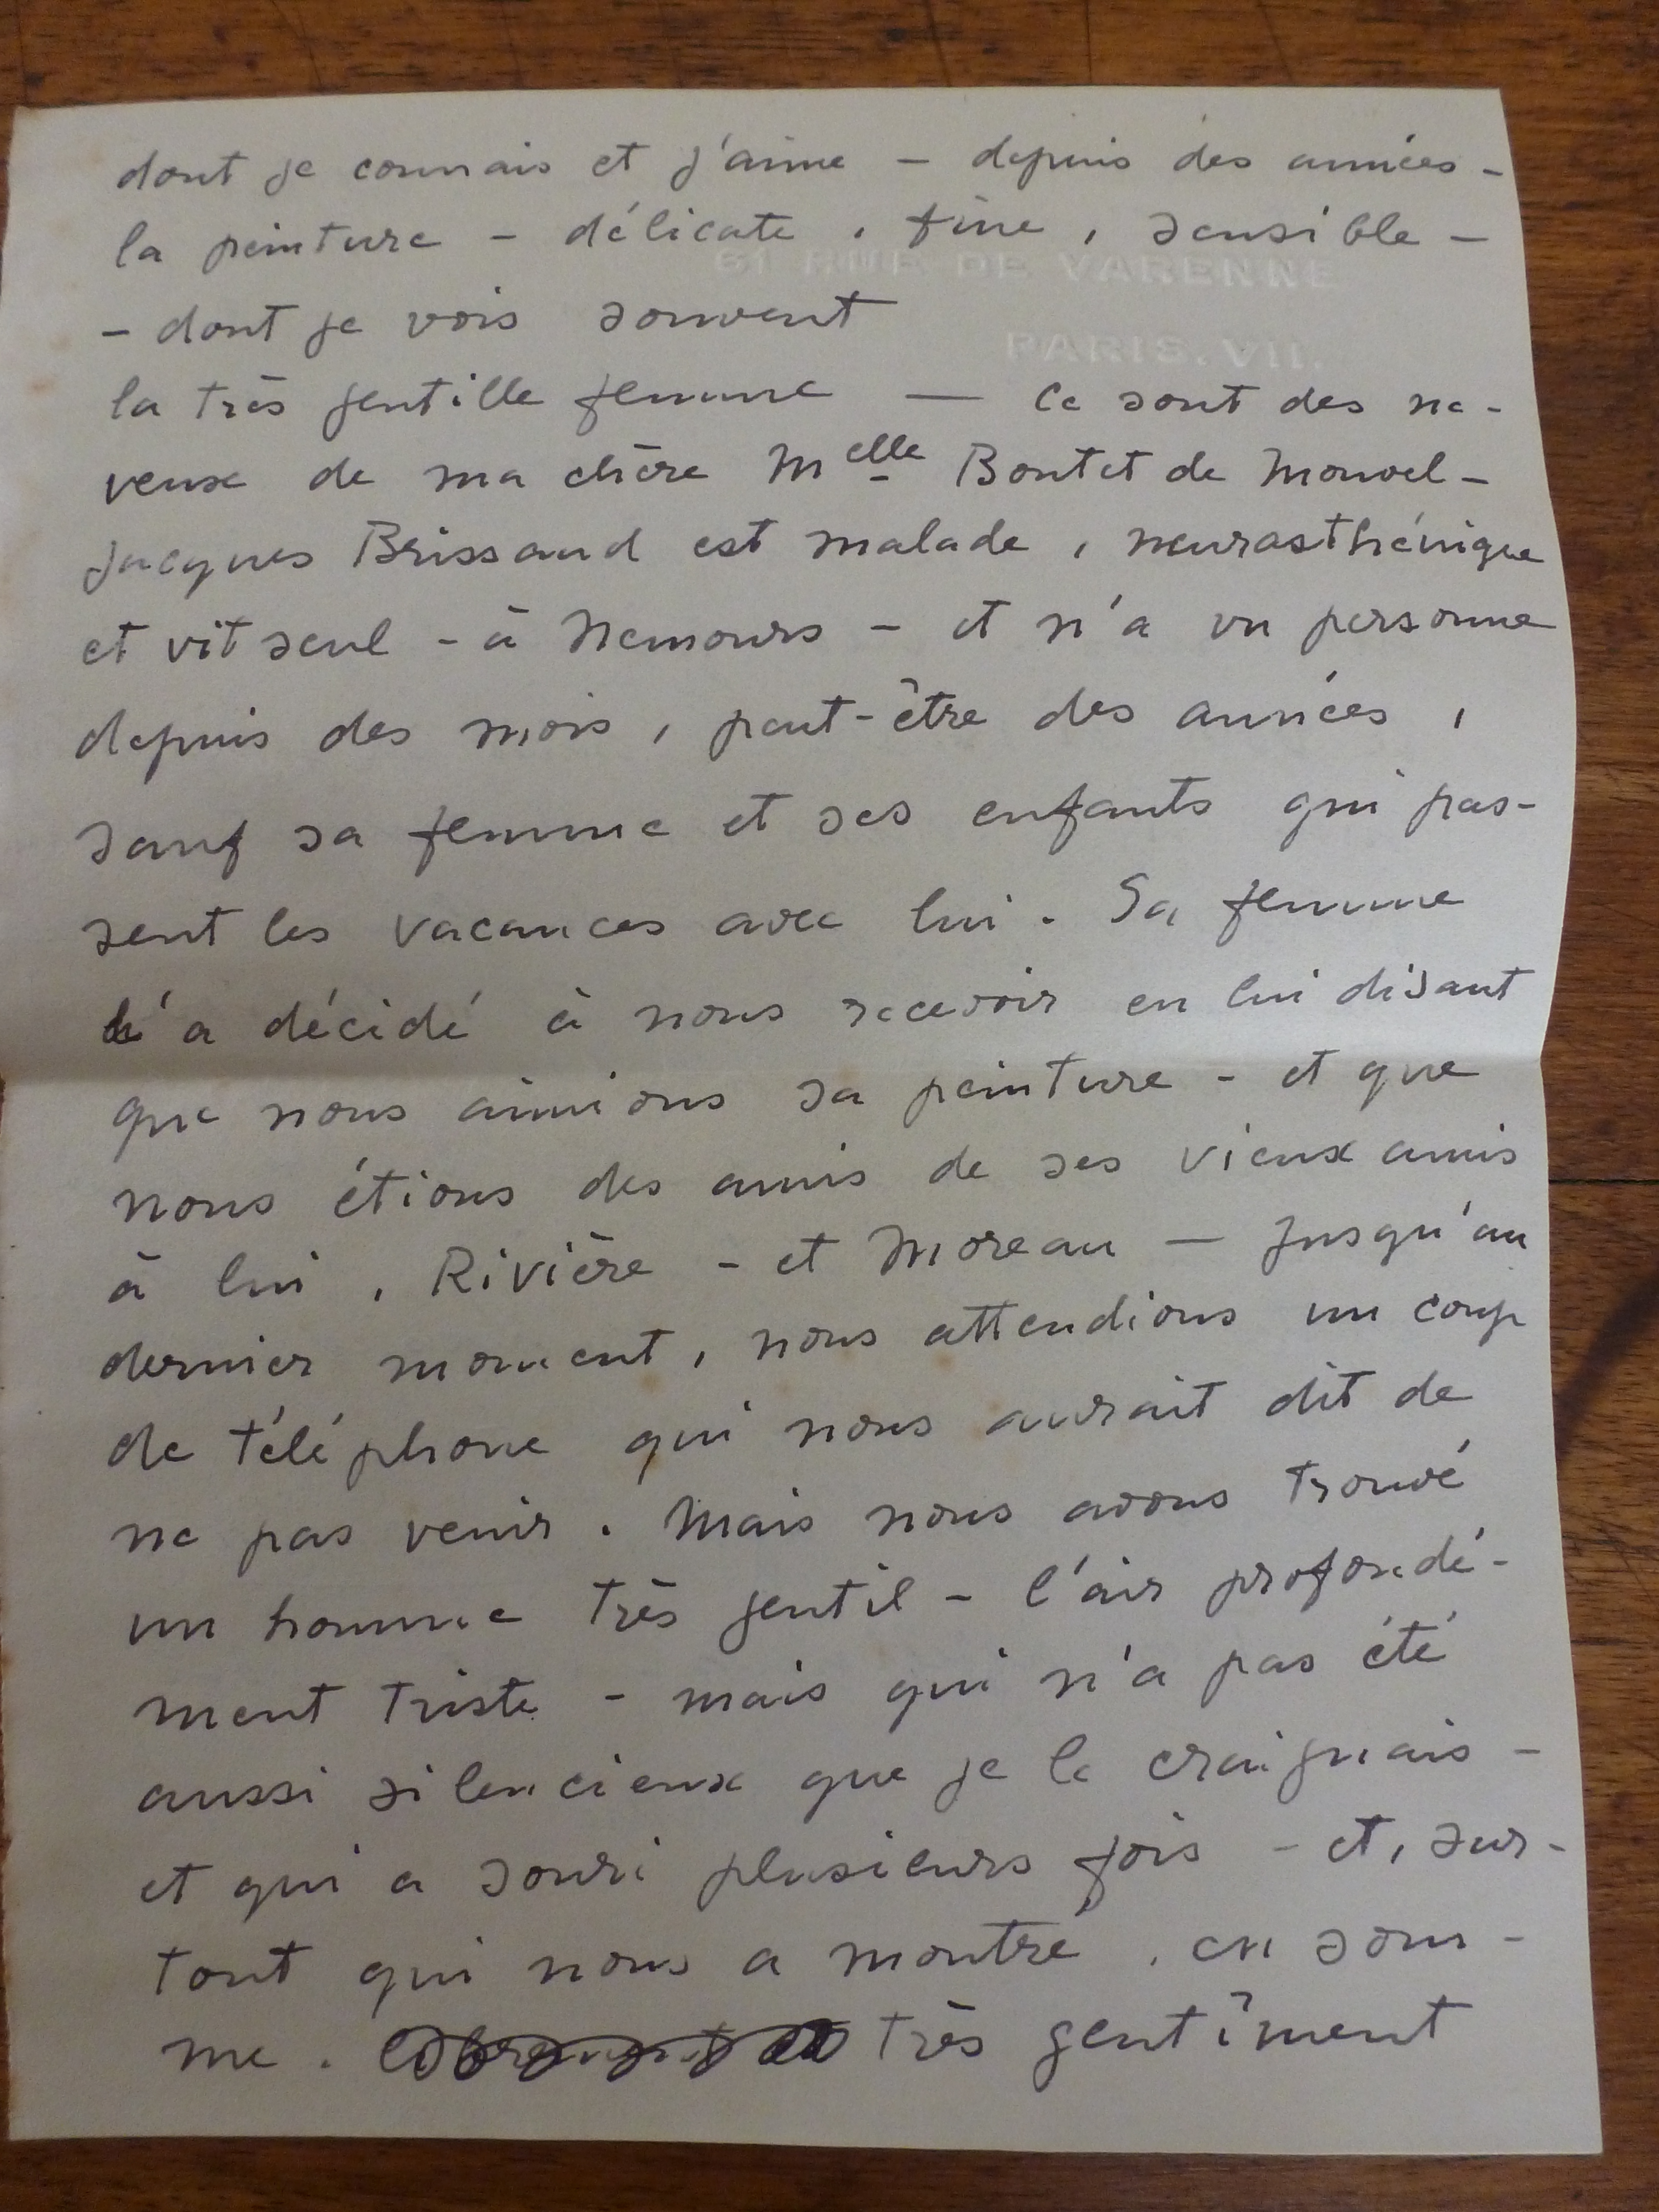 dont je connais et j'aime – depuis des années –
la peinture – délicate, fine, sensible –
61 RUE DE VARENNE
– dont je vois souvent
PARIS. VII.
la très gentille femme — Ce sont des ne-
veux de ma chère Melle Boutet de Monvel –
Jacques Brissaud est malade, neurasthénique
et vit seul – à Nemours – et n'a vu personne
depuis des mois, peut-être des années,
sauf sa femme et ses enfants qui pas-
sent les vacances avec lui. Sa femme
l'a décidé à nous recevoir en lui disant
que nous aimions sa peinture – et que
nous étions des amis de ses vieux amis
à lui, Rivière – et Moreau — Jusqu'au
dernier moment, nous attendions un coup
de téléphone qui nous aurait dit de
ne pas venir. Mais nous avons trouvé
un homme très gentil – l'air profondé-
ment triste – mais qui n'a pas été
aussi silencieux que je le craignais –
et qui a souri plusieurs fois – et, sur-
tout qui nous a montré, en som-
me. très gentiment